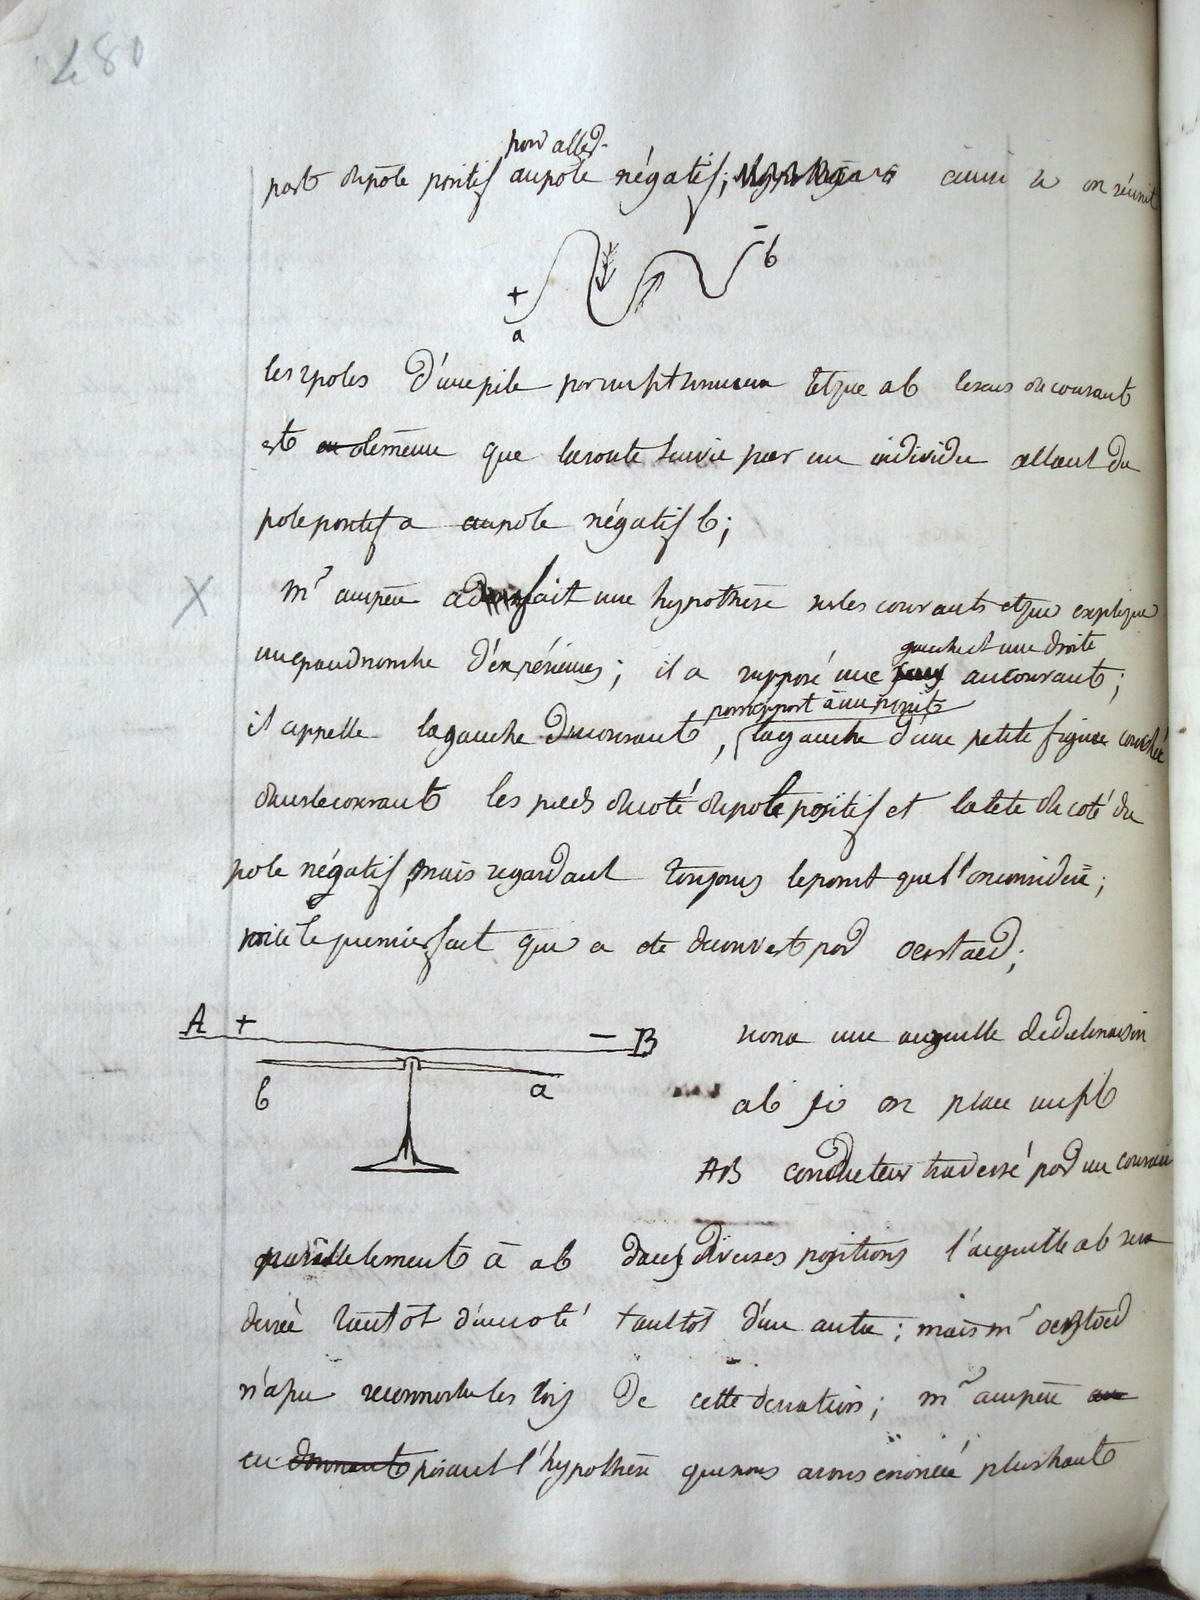 480
pour aller
part du pôle positif au pôle négatif; ainsi si on réunit
+ a - b
les 2 poles d'une pile par un fil tel que ab le sens du courant
est le même que la route suivie par un individu allant du
pole positif a au pole négatif b;
X mr ampère a fait une hypothèse sur les courants et qui explique
gauche et une droite
un grand nombre d'expériences; il a supposé une au courant;
par rapport à un point
il appelle la gauche du courant, la gauche d'une petite figure couchée
dans le courant les pieds du coté du pole positif et la tete du coté du
pole négatif, mais regardant toujours le point que l'on considère;
voici le premier fait qui a ete decouvert par oerstaed;
A + - B
b a
une aiguille de declinaison
ab si on place un fil
AB conducteur traversé par un courant
parallelement à ab dans diverses positions l'aiguille ab sera
deviée tantot d'un coté tantot d'un autre; mais mr oerstaed
n'a pu reconnoitre les lois de cette deviation; mr ampère
en donnant posant l'hypothèse que nous avons énoncée plus haut